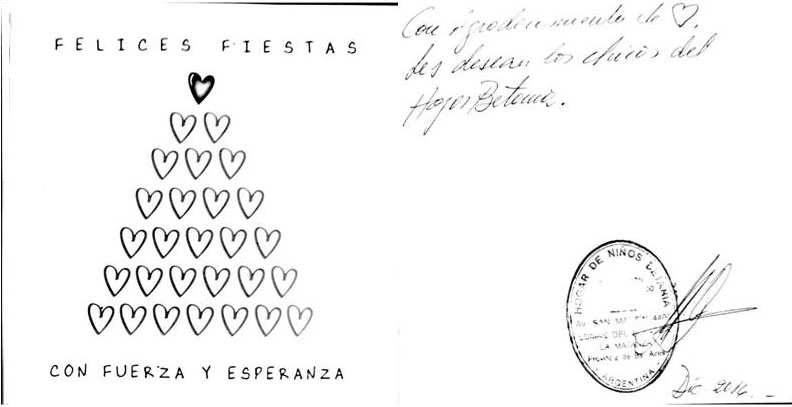 FELICES FIESTAS
CON FUERZA Y ESPERANZA
Con agradecimiento de ♡,
Les desean los chicos del
Hogar Betania.
HOGAR DE NIÑOS BETANIA
Av. SAN MARTIN
LOMAS DEL
LA MATANZA
Provincia de Bs. Aires
ARGENTINA
Dic. 2016.-